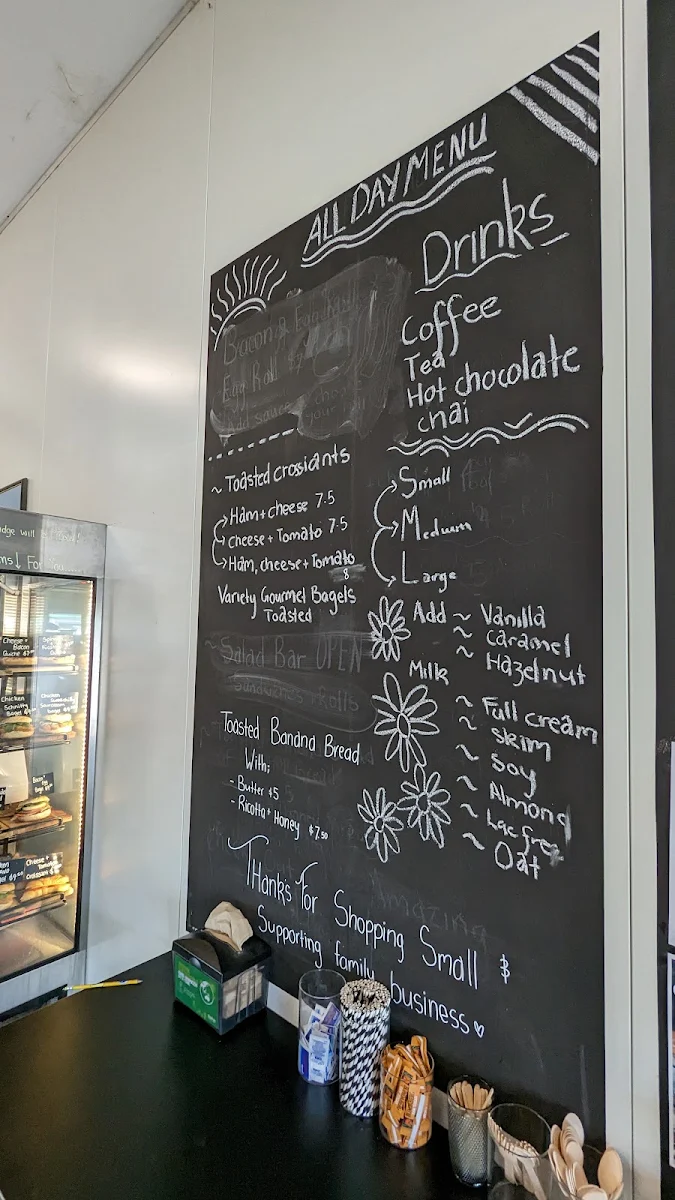 ALL DAY MENU
Bacon & Egg
Egg Roll
Add sauce
~ Toasted Crossiants
Ham + cheese 7.5
Cheese + Tomato 7.5
Ham, cheese + Tomato
8
Variety Gourmet Bagels
Toasted
Salad Bar OPEN
Sandwiches + Rolls
Toasted Banana Bread
With;
- Butter $5
- Ricotta + Honey $7.50
Drinks
Coffee
Tea
Hot chocolate
chai
Small
Medium
Large
Add ~ Vanilla
~ Caramel
~ Hazelnut
Milk
~ Full cream
~ Skim
~ Soy
~ Almond
~ Lac free
~ Oat
Amazing
THanks For Shopping Small $
Supporting family business ♡
Cheese +
Bacon
Quiche
Chicken
Schnitty
Bagel
Cheese +
Tomato